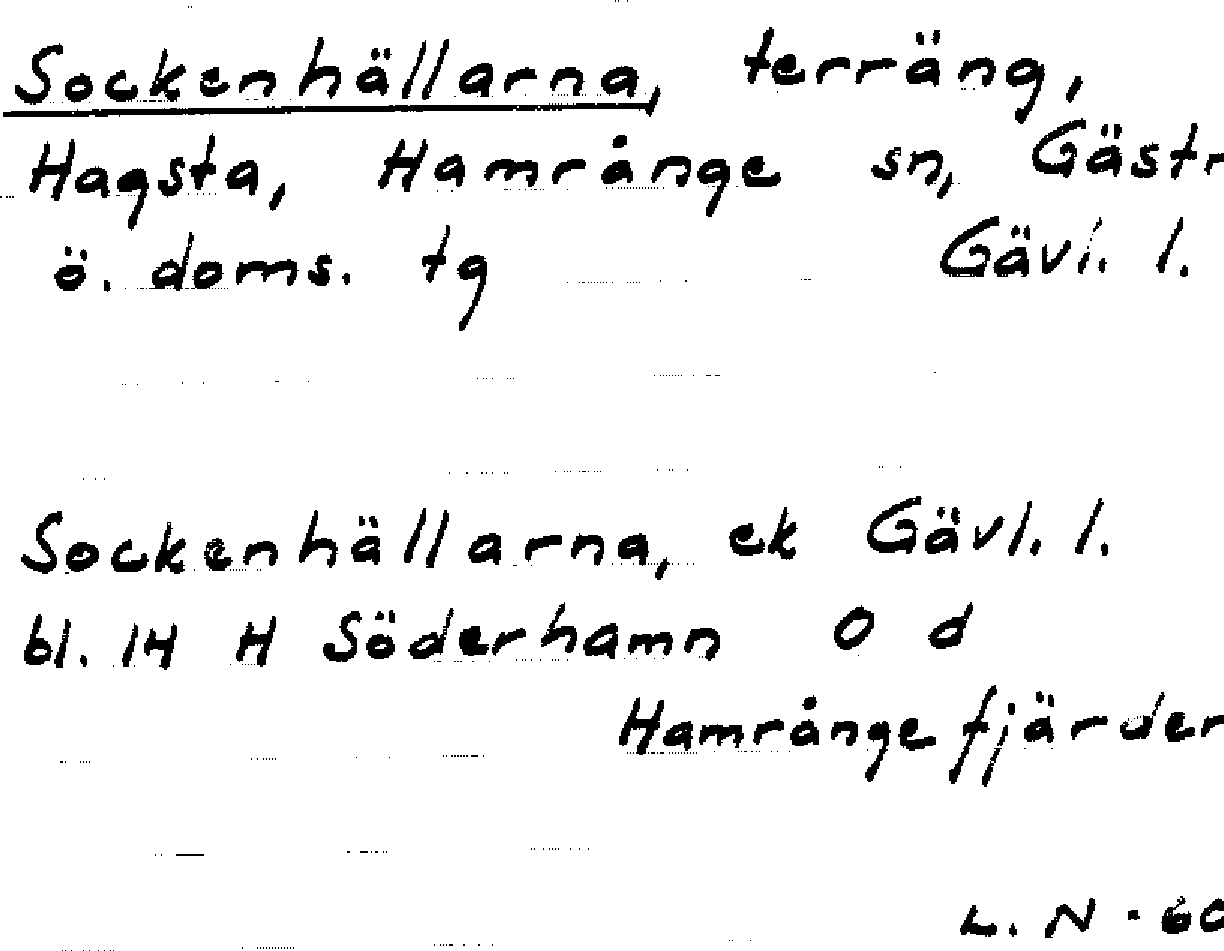 Sockenhällarna, terräng,
Hagsta, Hamrånge sn, Gästr
ö. doms. tg Gävl. l.
Sockenhällarna, ek Gävl. l.
bl. 14 H Söderhamn 0 d
Hamrångefjärder
L. N - 60